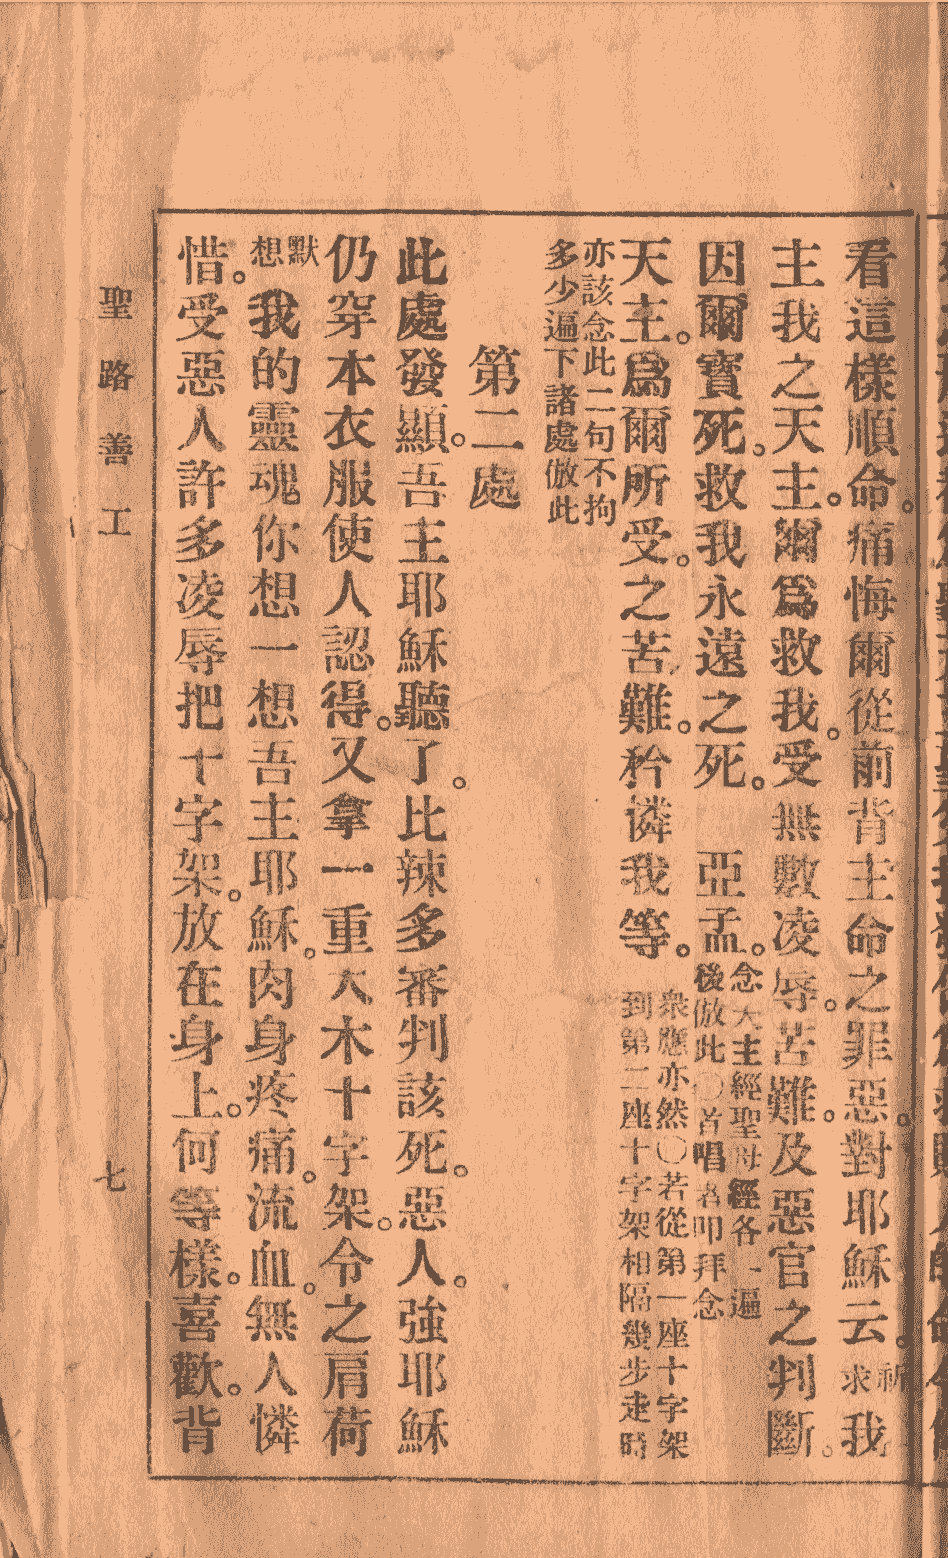 看這樣順命。痛悔爾從前背主命之罪惡。對耶穌云。祈求我
主我之天主。爾爲救我。受無數凌辱。苦難。及惡官之判斷。
因爾寶死。救我永遠之死。 亞孟。念天主經聖母經各一遍
後倣此〇首唱者叩拜念
天主。爲爾所受。之苦難。矜憐我等。衆應亦然〇若從第一座十字架
到第二座十字架相隔幾步走時
亦該念此二句不拘
多少遍下諸處倣此
第二處
此處發顯。吾主耶穌聽了。比辣多審判該死。惡人。強耶穌
仍穿本衣服使人認得。又拿一重大木十字架。令之肩荷
默想我的靈魂你想一想吾主耶穌。肉身疼痛。流血。無人憐
惜。受惡人許多凌辱把十字架。放在身上。何等樣。喜歡。背
聖路善工
七